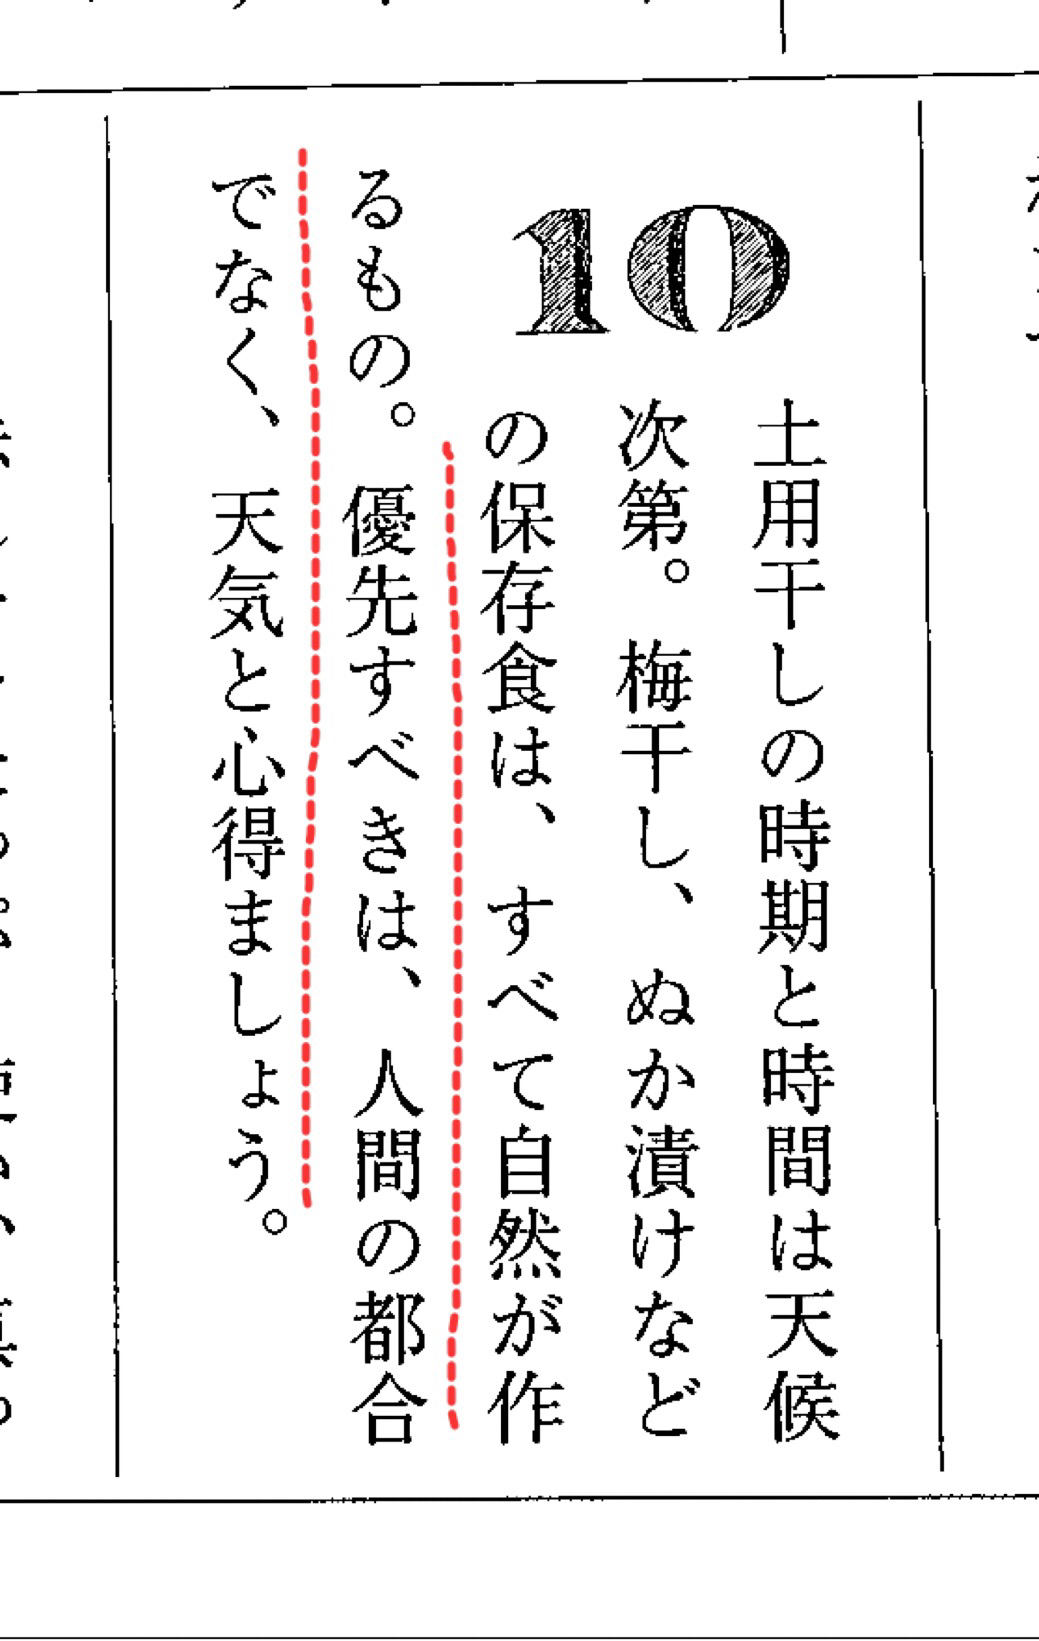 10
土用干しの時期と時間は天候
次第。梅干し、ぬか漬けなど
の保存食は、すべて自然が作
るもの。優先すべきは、人間の都合
でなく、天気と心得ましょう。